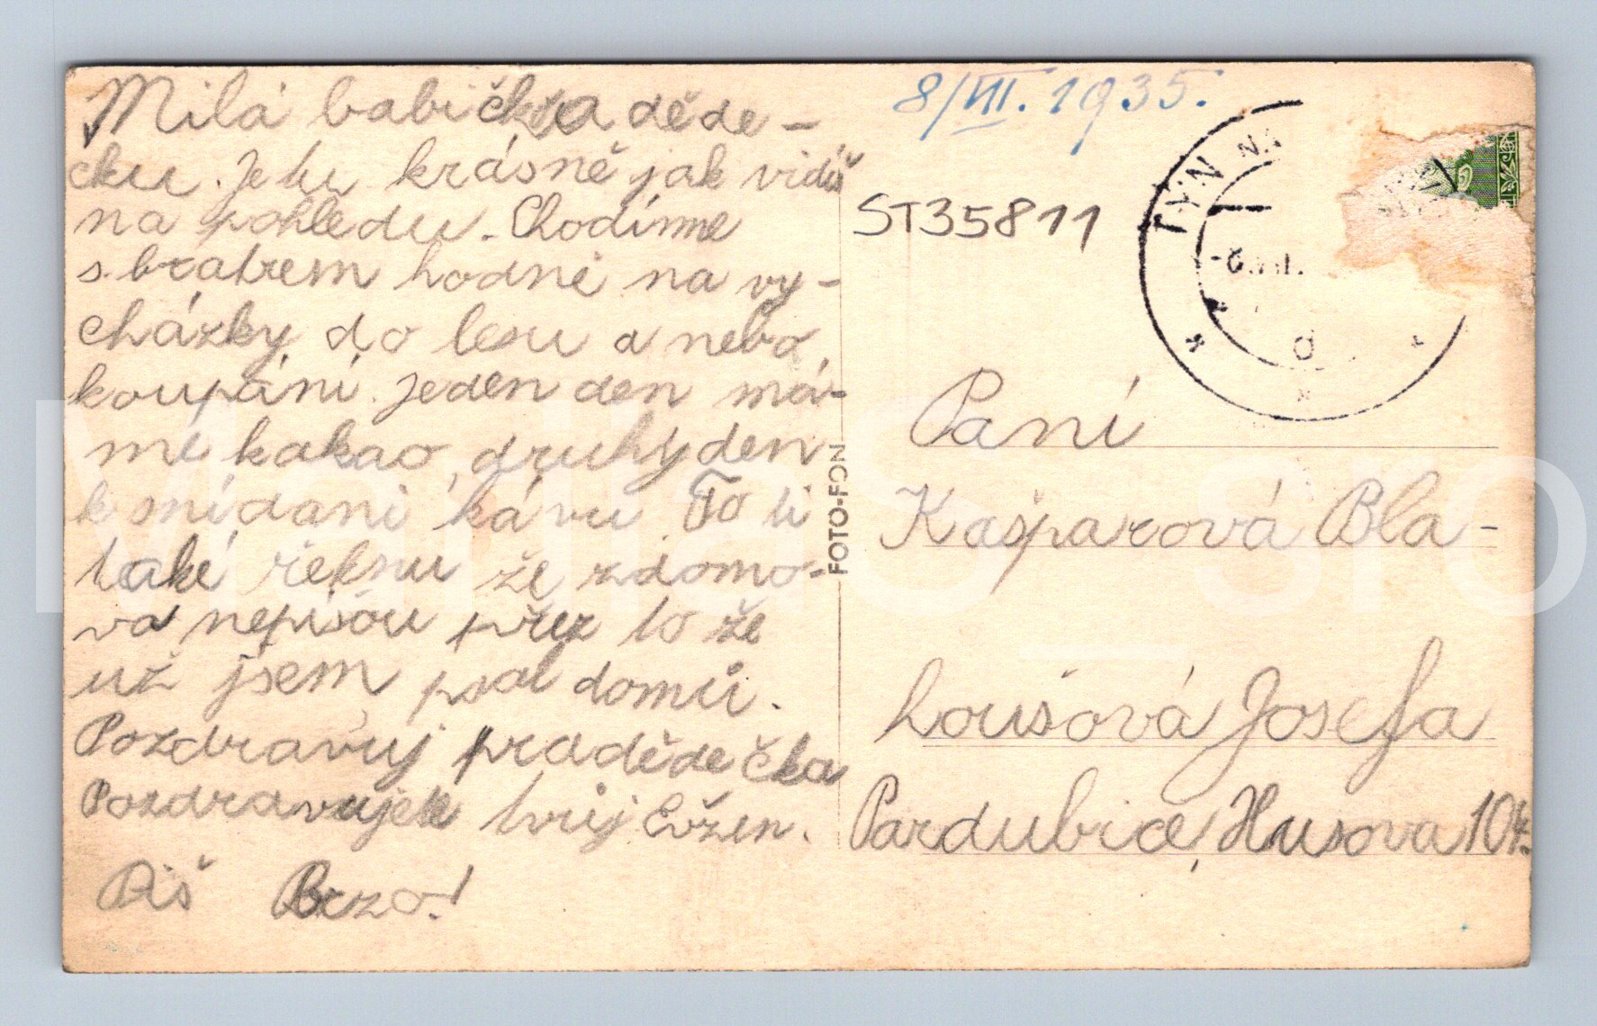 Milá babičko a děde-
čku. Je tu krásně jak vidíš
na pohledu. Chodíme
s bratrem hodně na vy-
cházky do lesu a nebo
koupání. Jeden den má-
mé kakao druhý den
k snídani kávu. To ti
také řeknu že z domo-
va nepíšou přez to že
už jsem psal domů.
Pozdravuj pradědečka
Pozdravujek tvůj Evžen.
Piš Brzo!
8/VII. 1935.
ST35811
TÝN N.
FOTO-FON
Paní
Kašparová Bla-
housová Josefa
Pardubice, Husova